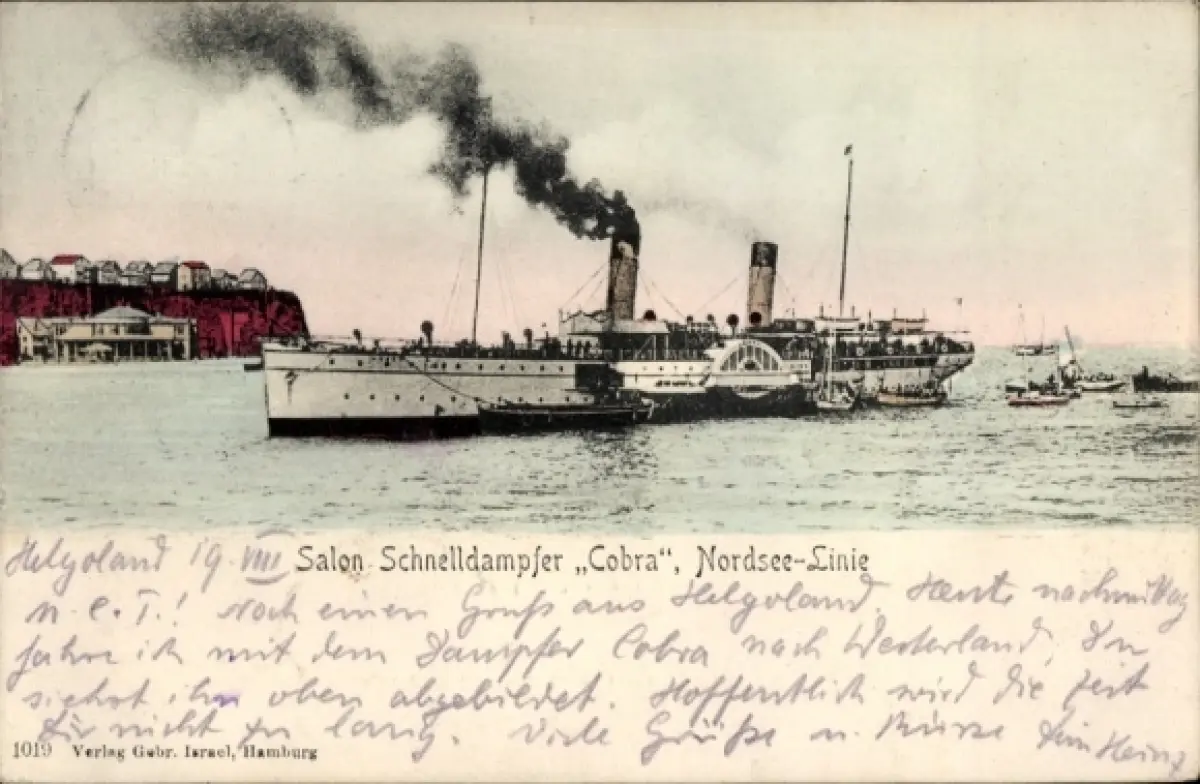 Salon Schnelldampfer „Cobra“, Nordsee-Linie
Helgoland 19. VIII
M. l. T.! Noch einen Gruß aus Helgoland. Heute nachmittag
fahre ich mit dem Dampfer Cobra nach Westerland. Du
siehst ihn oben abgebildet. Hoffentlich wird die Zeit
Dir nicht zu lang. Viele Grüße u. Küsse Dein Heinz
1019 Verlag Gebr. Israel, Hamburg